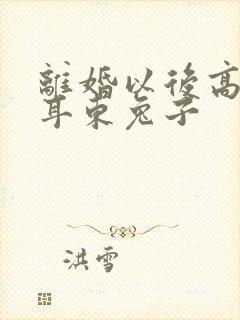 離婚以後高
耳東兔子
洪雪